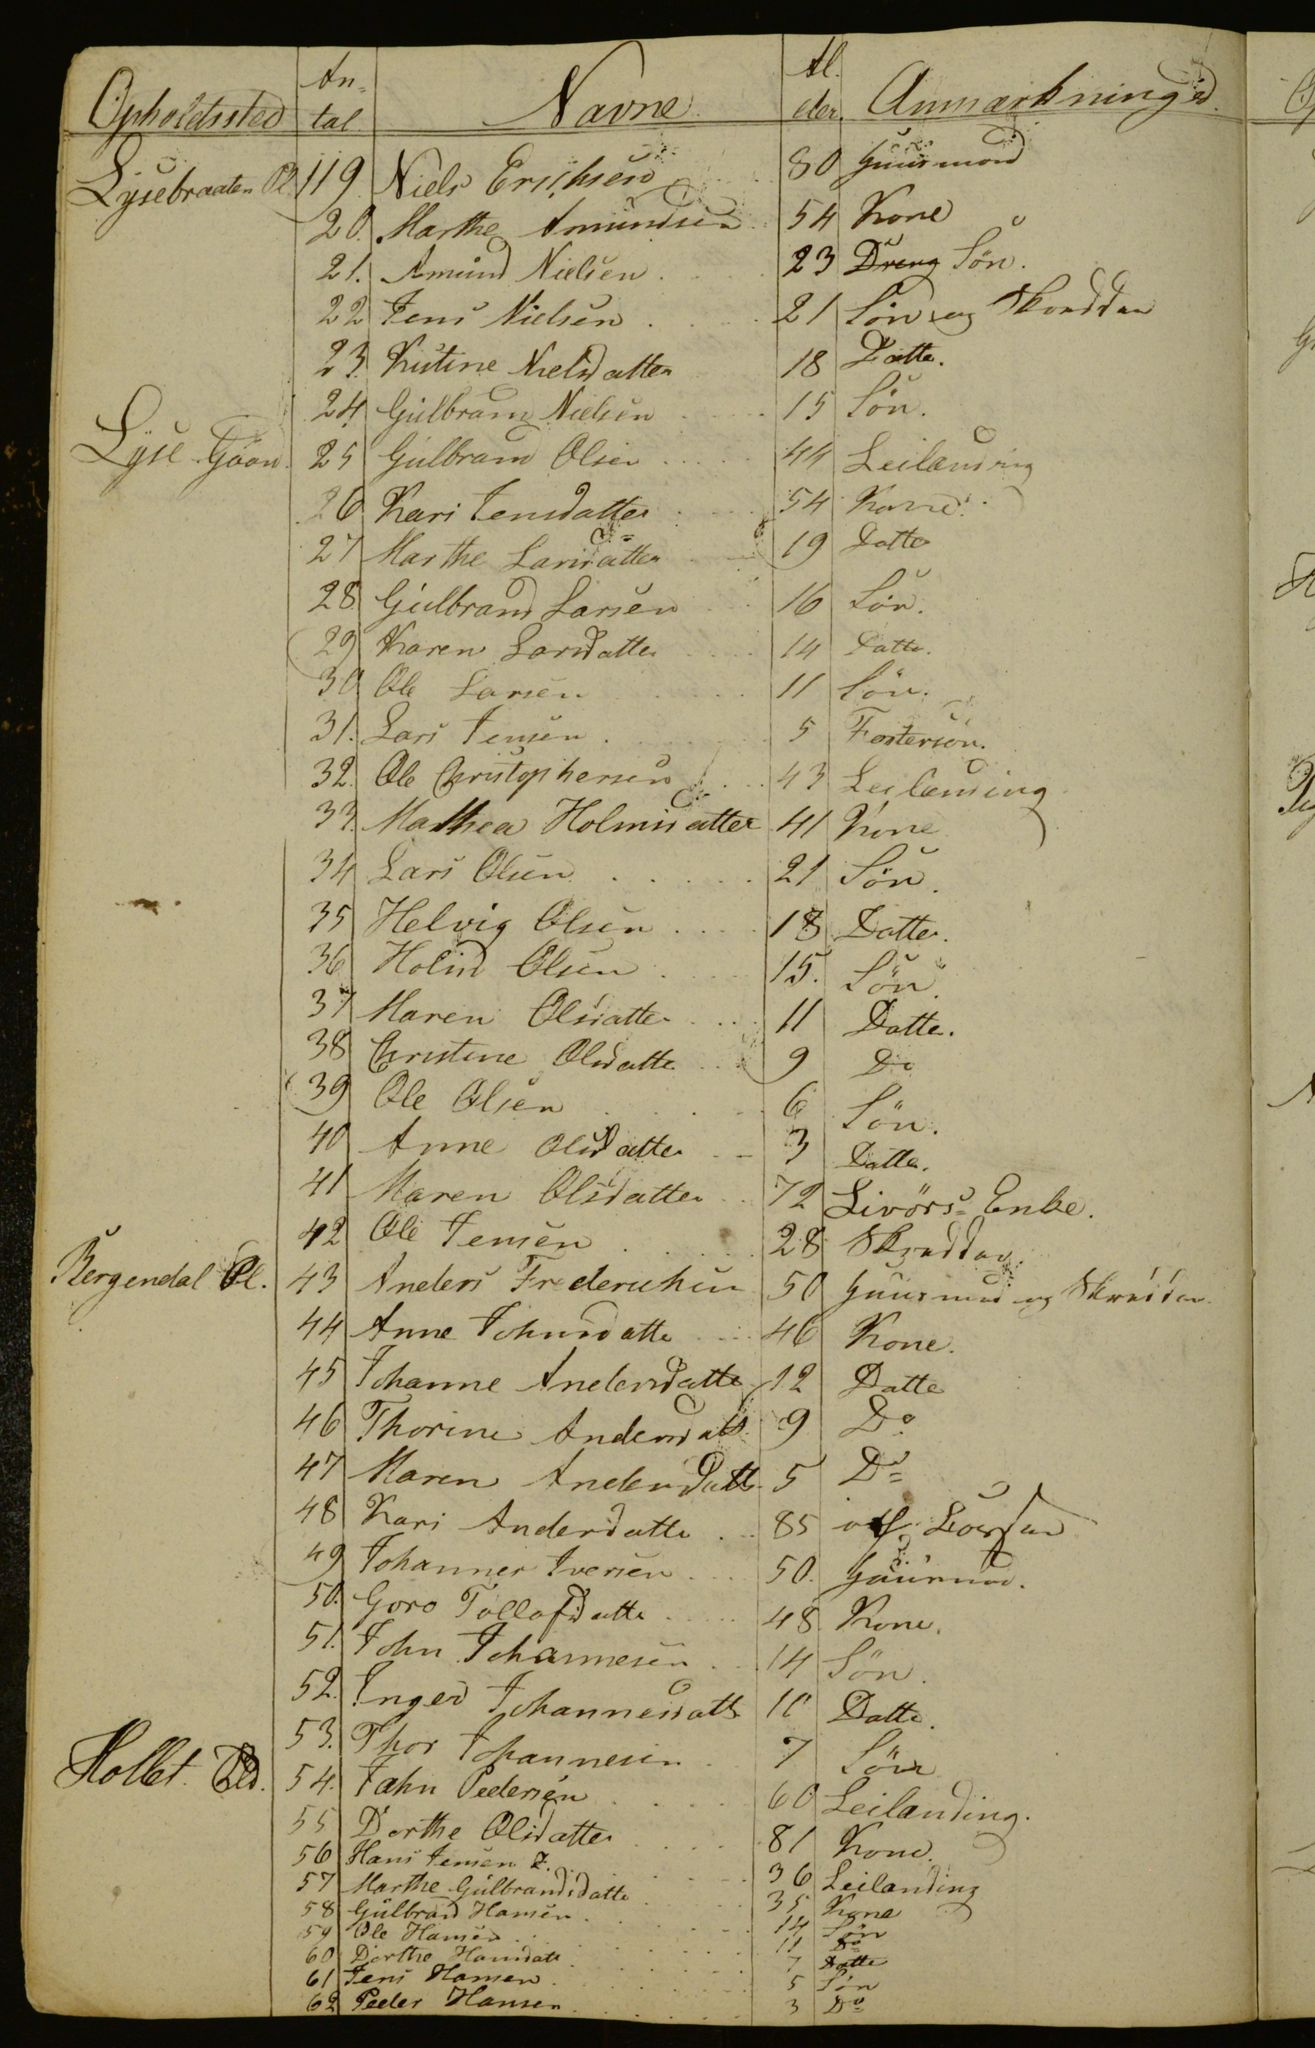 Opholdssted An- tal Navne Al- der. Anmærkninger
Lysebraaten Pl 119 Niels Erichsen 80 Huusmand
20. Marthe Amundsen 54 Kone
21. Amund Nielsen 23 Dreng Søn.
22 Jens Nielsen 21 Søn og Skrædder
23. Kistine Nielsdatter 18 Datte.
24 Gulbrand Nielsen 15 Søn.
Lyse Gaard 25 Gulbrand Olsen 44 Leilænding
26 Kari Jensdatter 54 Kone.
27 Marthe Larsdatter 19 Datter
28 Gulbrand Larsen 16 Søn.
29 Karen Larsdatter 14 Datte.
30 Ole Larsen 11 Søn.
31. Lars Jensen 5 Fostersøn.
32. Ole Christophersen 43 Leilænding
33. Mathea Holmsdatter 41 Kone
34 Lars Olsen 21 Søn.
35 Helvig Olsen 18 Datter.
36 Holm Olsen 15. Søn
37 Maren Olsdatter 11 Datte.
38 Christine Olsdatte 9 Do
39 Ole Olsen 6 Søn.
40 Anne Olsdatter 3 Datte.
41 Maren Olsdatter 72 Livörs- Enke.
42 Ole Jensen 28 Skrædder
Bergendal Pl. 43 Anders Frederichsen 50 Huusmand og Skrædder
44 Anne Johnsdatte 46 Kone.
45 Johanne Andersdatte 12 Datte
46 Thorine Andersdatt. 9 Do
47 Maren Andersdatt. 5 Do
48 Kari Andersdatte 85
49 Johannes Iversen 50. Huusmand.
50. Goro Tollofsdatte 48 Kone.
51. John Johannesen 14 Søn.
52. Inger Johannesdatt. 10 Datte.
53. Thor Johannesen 7 Søn
Hollet 54. Jahn Pedersen 60 Leilænding.
55 Dorthe Olsdatter 81 Kone.
56 Hans Jensen 36 Leilænding
57 Marthe Gulbrandsdatte 35 Kone
58 Gulbrand Hansen 14 Søn
59 Ole Hansen 11 Do
60 Dorthe Hansdatt 7 Datte
61 Jens Hansen 5 Søn
62 Peder Hansen 3 Do